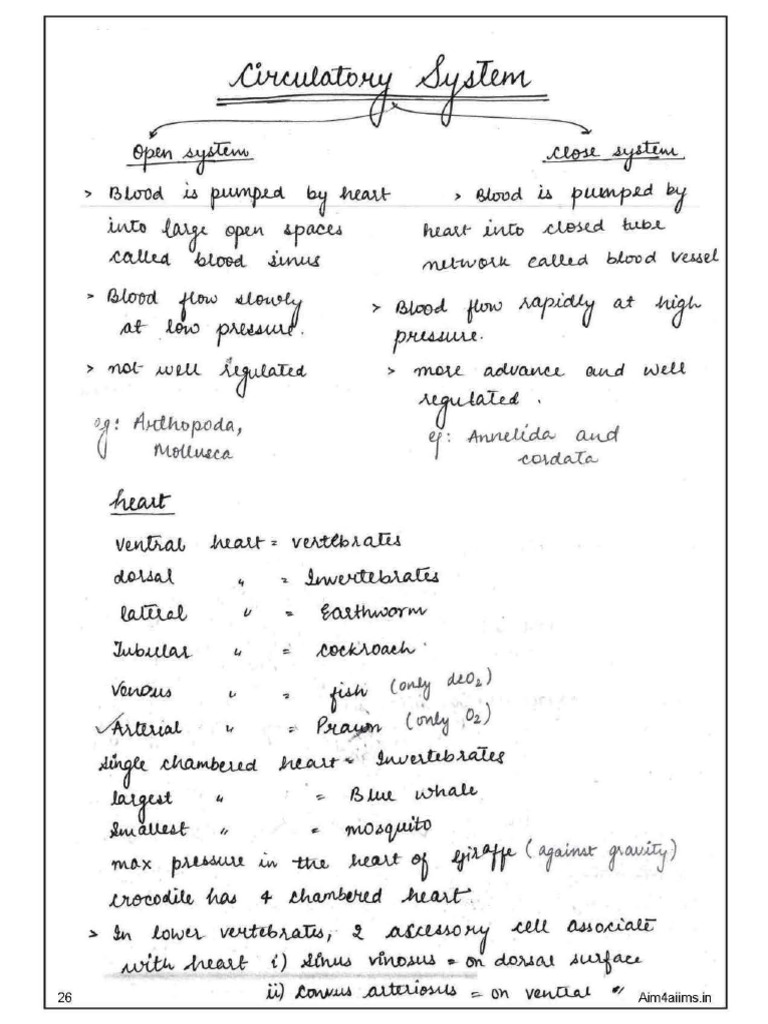 Circulatory System
Open system
> Blood is pumped by heart
into large open spaces
called blood sinus
> Blood flow slowly
at low pressure.
> not well regulated
eg: Arthopoda,
Mollusca
Close system
> Blood is pumped by
heart into closed tube
network called blood vessel
> Blood flow rapidly at high
pressure.
> more advance and well
regulated.
eg: Annelida and
cordata
heart
ventral heart = vertebrates
dorsal " = Invertebrates
lateral " = Earthworm
Tubular " = cockroach.
Venous " = fish (only deO₂)
✓Arterial " = Prawn (only O₂)
single chambered heart = Invertebrates
largest " = Blue whale
Smallest " = mosquito
max pressure in the heart of Giraffe (against gravity)
crocodile has 4 chambered heart.
> In lower vertebrates, 2 accessory cell associate
with heart i) sinus vinosus = on dorsal surface
ii) conus arteriosus = on ventral "
26
Aim4aiims.in